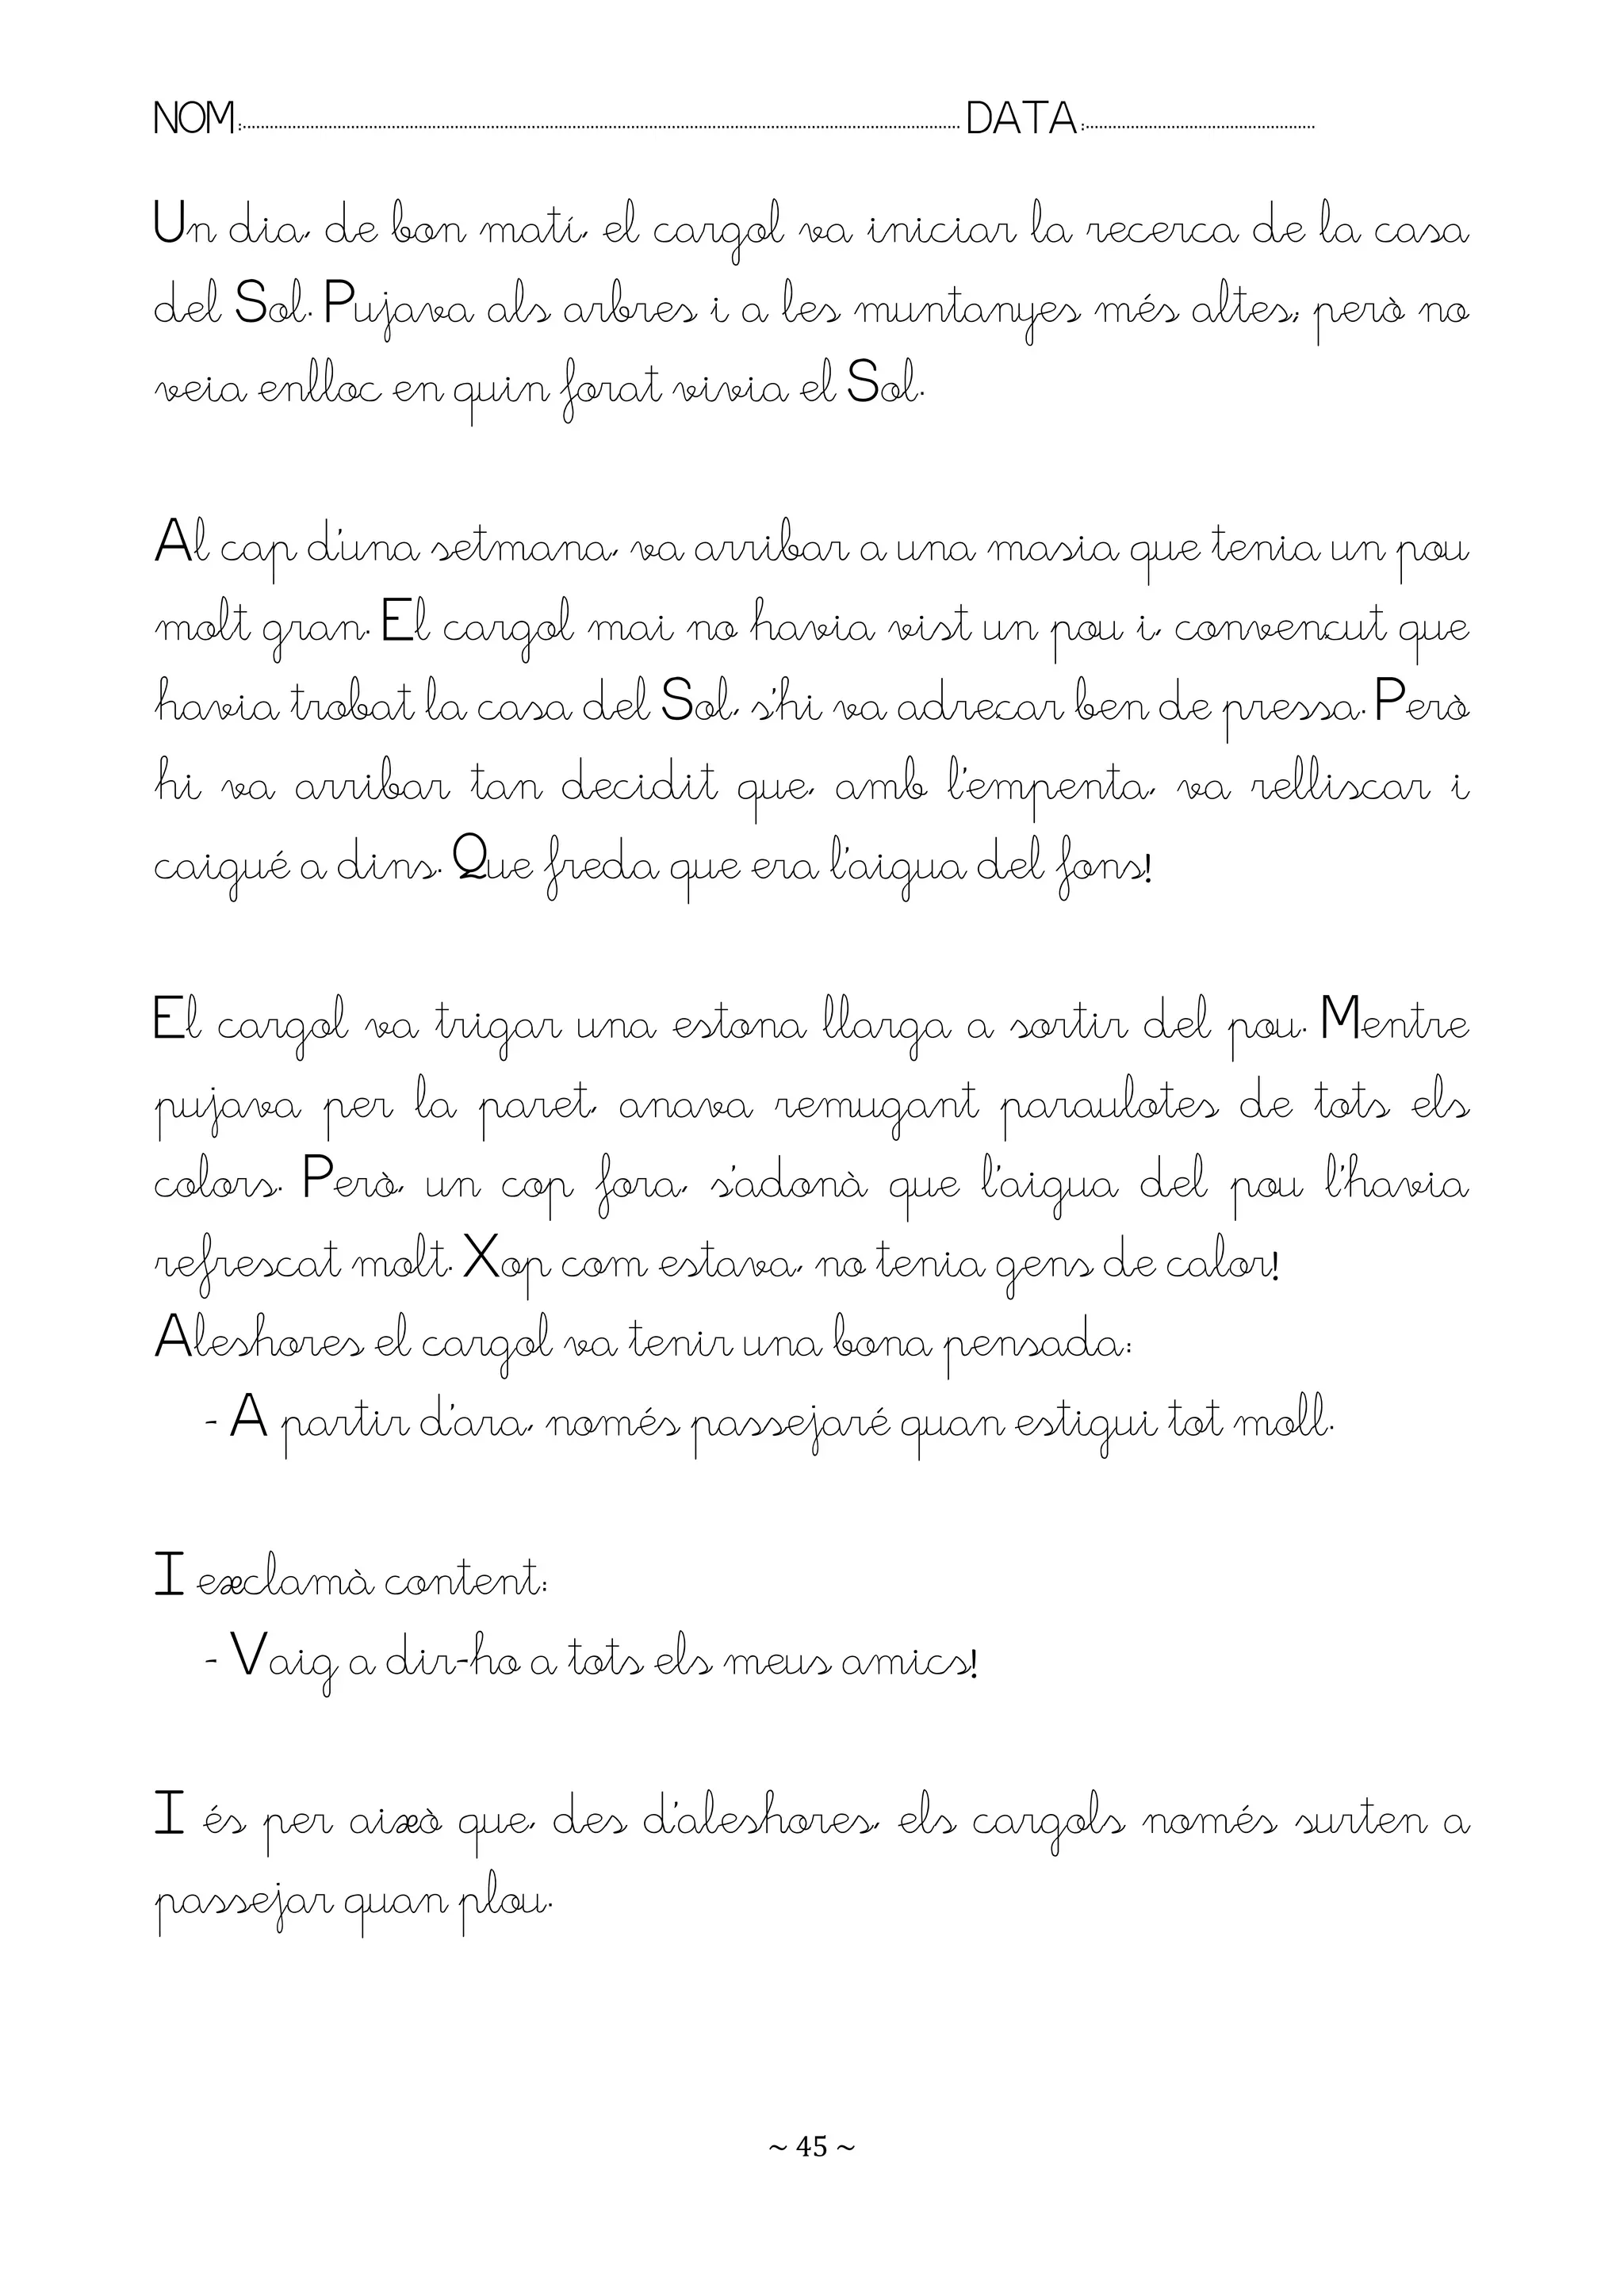 NOM:................................................ DATA:................
Un dia, de bon matí, el cargol va iniciar la recerca de la casa
del Sol. Pujava als arbres i a les muntanyes més altes; però no
veia enlloc en quin forat vivia el Sol.
Al cap d'una setmana, va arribar a una masia que tenia un pou
molt gran. El cargol mai no havia vist un pou i, convencut que
havia trobat la casa del Sol, s'hi va adreçar ben de pressa. Però
hi va arribar tan decidit que, amb l'empenta, va relliscar i
caigué a dins. Que freda que era l'aigua del fons!
El cargol va trigar una estona llarga a sortir del pou. Mentre
pujava per la paret, anava remugant paraulotes de tots els
colors. Però, un cop fora, s'adonà que l'aigua del pou l'havia
refrescat molt. Xop com estava, no tenia gens de calor!
Aleshores el cargol va tenir una bona pensada:
- A partir d'ara, només passejaré quan estigui tot moll.
I exclamà content:
- Vaig a dir-ho a tots els meus amics!
I és per això que, des d'aleshores, els cargols només surten a
passejar quan plou.
~ 45 ~